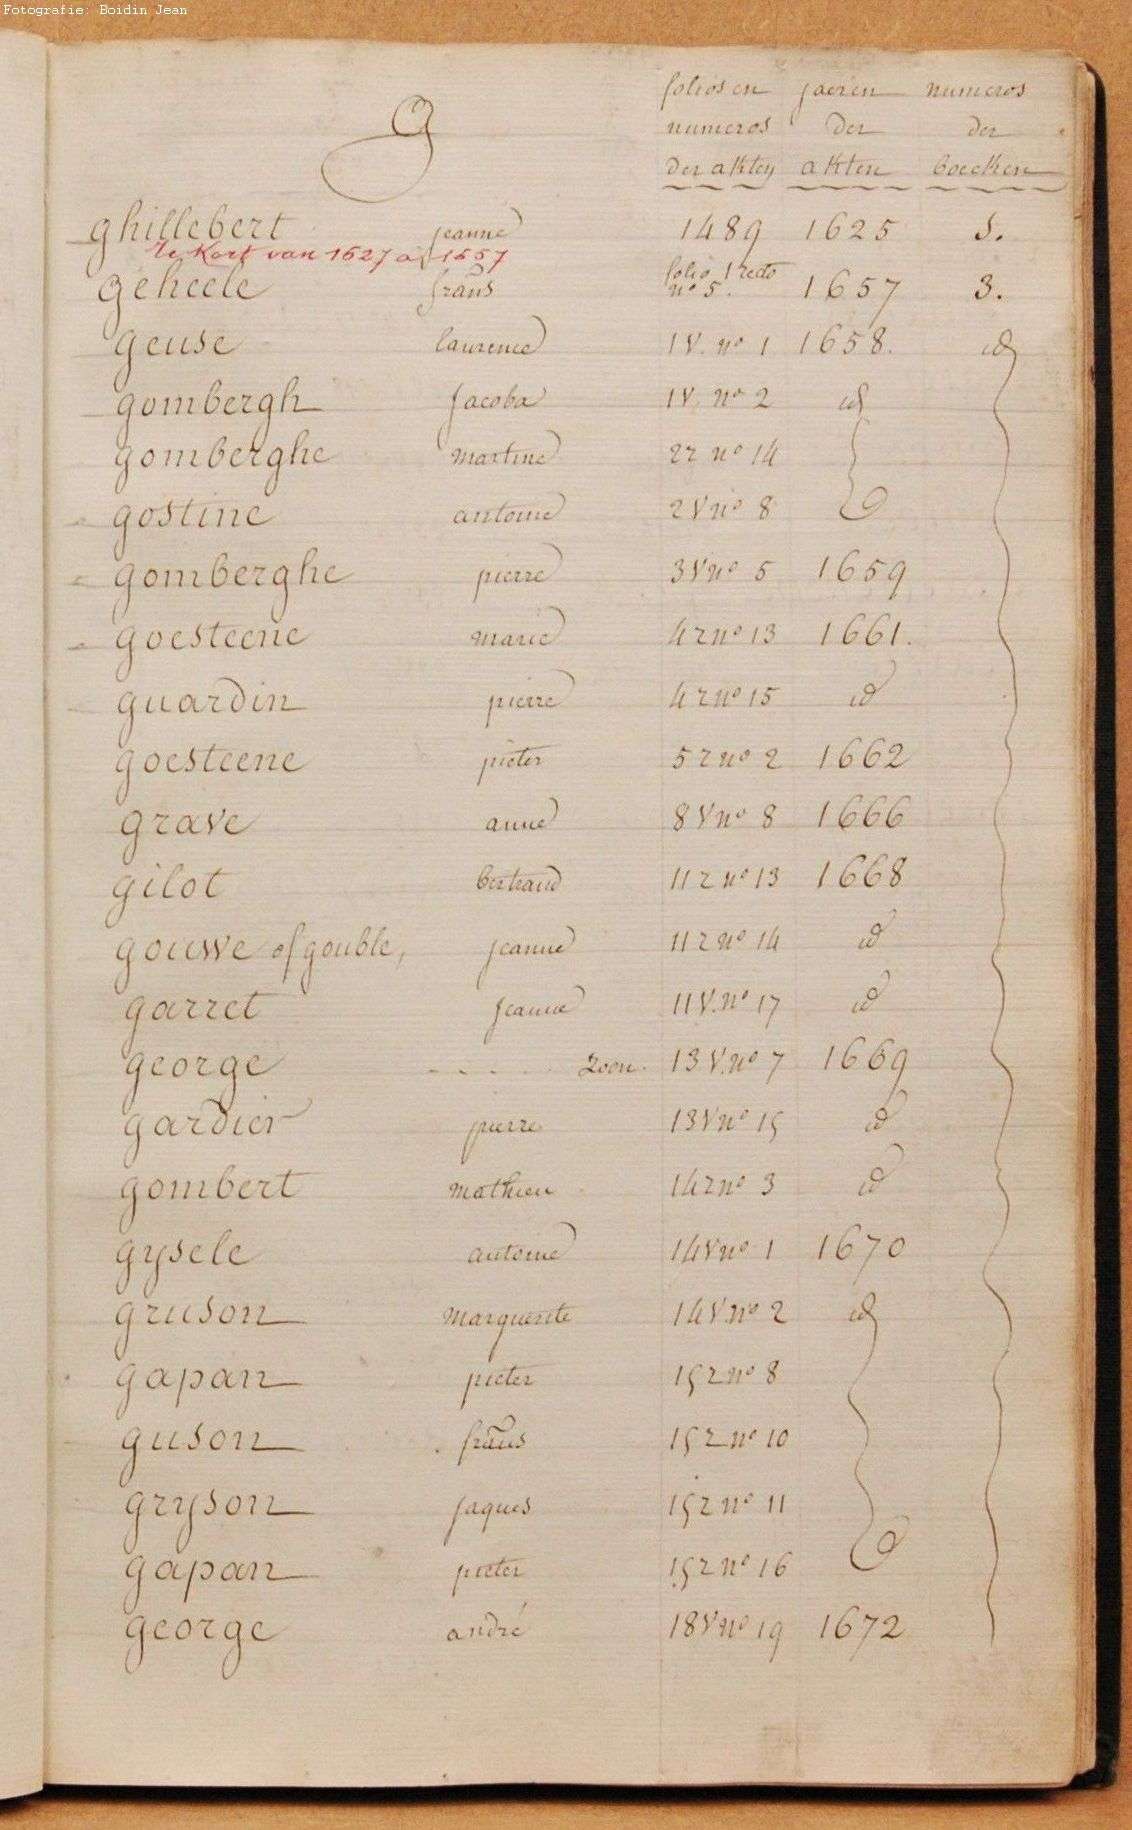 Fotografie: Boidin Jean
G
folios en jaeren numeros
numeros der der
der akten akten boecken
ghillebert jeanne 1489 1625 1.
te Kort van 1627 a 1657
geheele frans folio 1 recto n° 5. 1657 3.
geuse laurence 1V. n° 1 1658. id
gombergh Jacoba 1V. n° 2 id
gomberghe martine 2r n° 14
gostine antoine 2V n° 8
gomberghe pierre 3V n° 5 1659
goesteene marie 4r n° 13 1661.
guardin pierre 4r n° 15 id
goesteene pieter 5r n° 2 1662
grave anne 8V n° 8 1666
gilot bertrand 11r n° 13 1668
gouwe of gouble, jeanne 11r n° 14 id
garret Jeanne 11V. n° 17 id
george . . . . . zoon. 13V. n° 7 1669
gardier pierre 13V n° 15 id
gombert mathieu 14r n° 3 id
gysele antoine 14V n° 1 1670
gruson marguerite 14V. n° 2 id
gapan pieter 15r n° 8
guson frans 15r n° 10
gryson jaques 15r n° 11
gapan pieter 15r n° 16
george andré 18V n° 19 1672